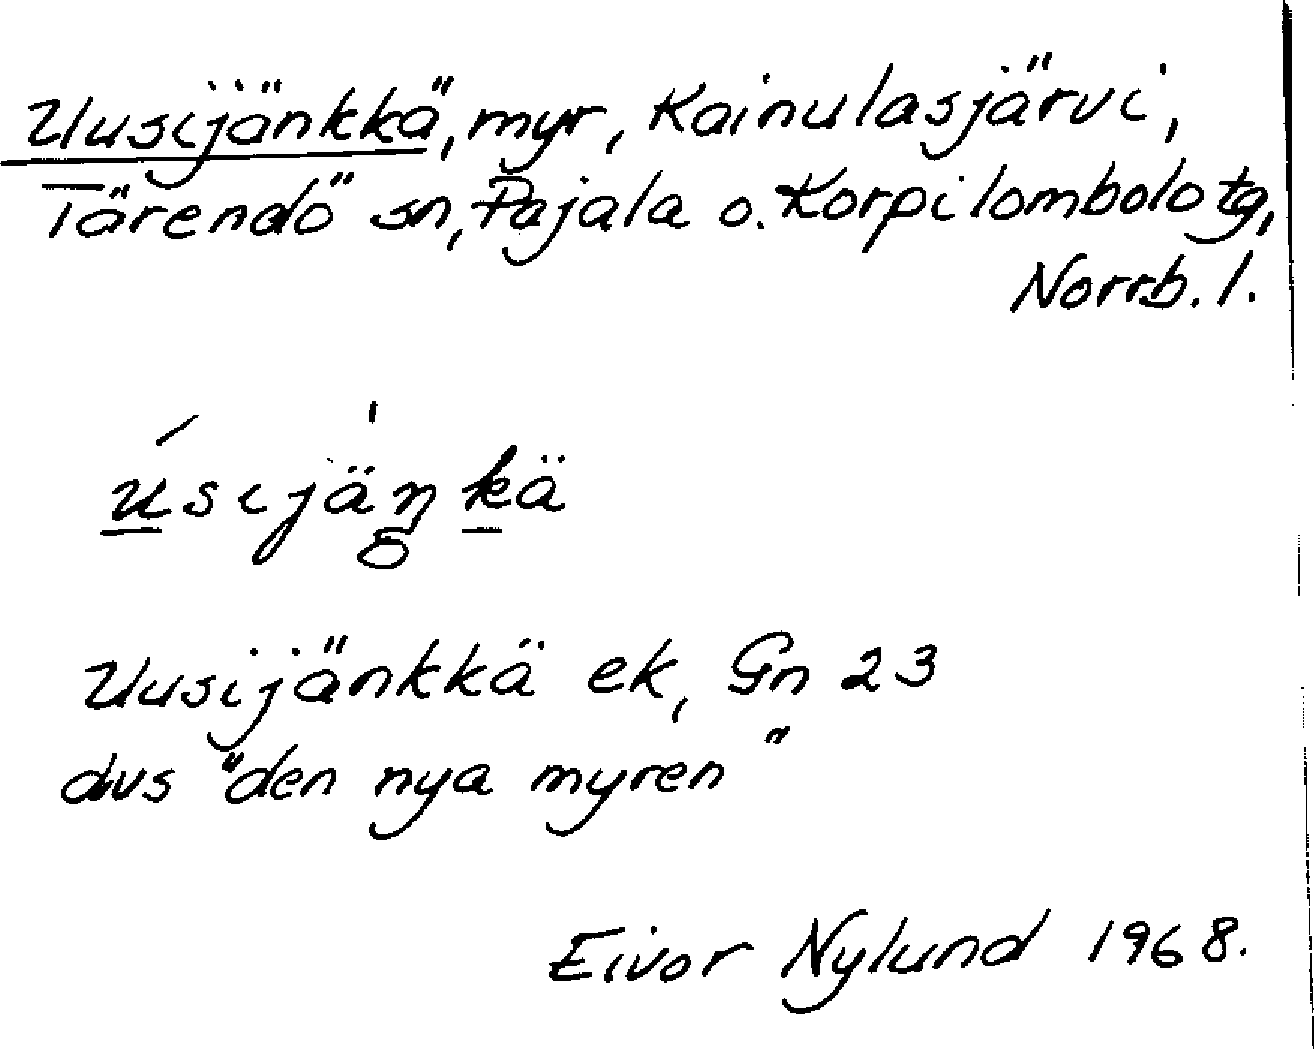 Uusijänkkä, myr, Kainulasjärvi,
Tärendö sn, Pajala o. Korpilombolo tg,
Norrb. l.
úsijäŋkä
Uusijänkkä ek, Gn 23
dvs "den nya myren"
Eivor Nylund 1968.